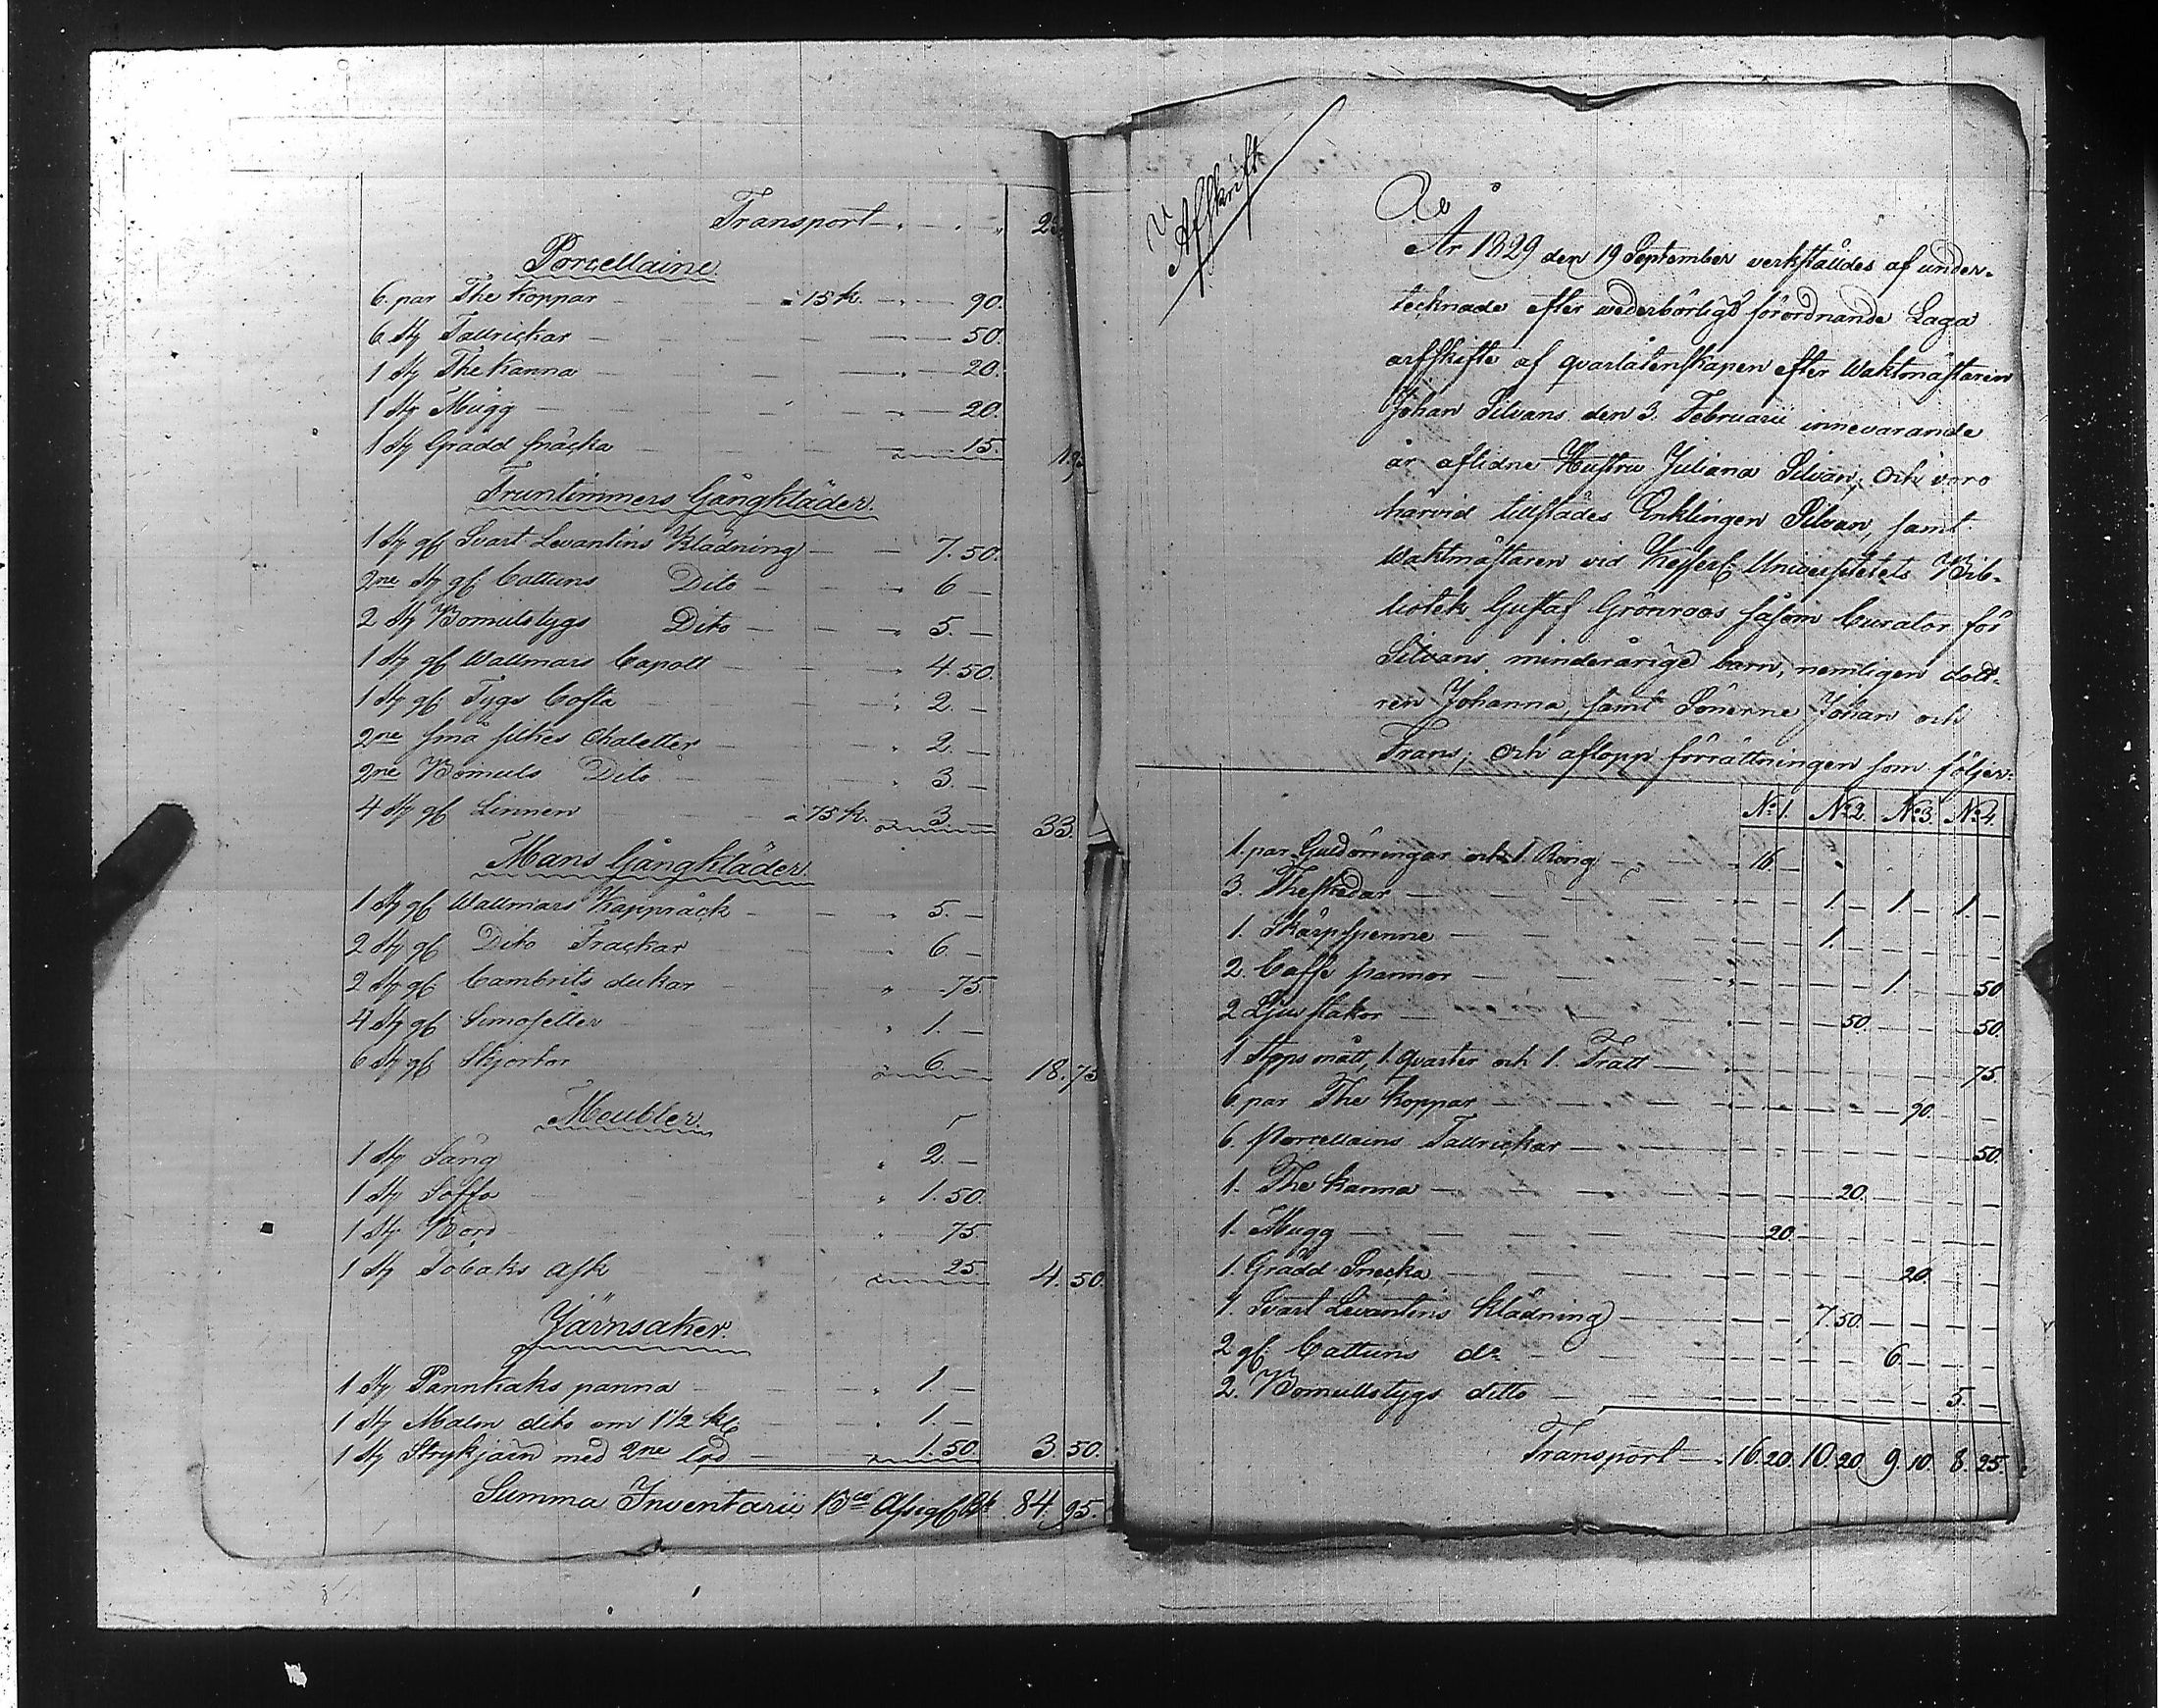 Transport
Porcellaine
6. par The Koppar à 15 k. 90.
6 st Tallrickar 50.
1 st The Kanna 20.
1 st Mugg 20.
1 st Grädd snäcka 15. 1.95
Fruntimmers Gångkläder.
1 st gl Svart Levantins Klädning 7.50.
2ne st gl. Cattuns Dito 6 —
2 st Bomulstygs Dito 5. —
1 st gl Wallmars Capott 4.50.
1 st gl Tygs Cofta 2. —
2ne små silkes Chaletter 2. —
2ne Bomuls Dito 3. —
4 st gl Linnen à 75 k. 3 — 33.
Mans Gångkläder.
1 st gl Wallmars Kappråck 5. —
2 st gl Dito Frackar 6. —
2 st gl Cambrits dukar 75.
4 st gl Simosetter 1. —
6 st gl Skjortor 6. — 18.75
Meubler.
1 st Säng 2. —
1 st Soffa 1.50.
1 st Bord 75.
1 st Tobaks ask 25. 4.50.
Järnsaker.
1 st Pannkaks panna 1. —
1 st Malm dito om 1 1/2 1. —
1 st Strykjärn med 2ne lod 1.50 3.50.
Summa Inventarii Bco Assig 84.95.
Afskrift
År 1829 den 19 September verkstäldes af under-
tecknade efter wederbörligt förordnande Laga
arfskifte af qvarlåtenskapen efter Waktmästaren
Johan Silvans den 3. Februarii innevarande
år aflidne Hustru Juliana Silvan, och voro
härvid tillstädes Enklingen Silvan, samt
Waktmästaren vid Kejserl: Universitetets Bib-
liotek Gustaf Grönroos såsom Curator för
Silvans minderårige barn, nemligen dott-
ren Johanna, samt Sönerne Johan och
Frans; och aflopp förrättningen som följer.
No 1. No 2. No 3. No 4.
1. par Guldörringar och 1. Ring 16. —
3. Theskedar 1. — 1. — 1. —
1. Skärpspenne 1. —
2. Caffe pannor 1. — 50
2 Ljusstakar 50. 50.
1 Stops mått, 1. qvarter och 1. Tratt 75.
6. par The Koppar 90.
6. Porcellains Tallrickar 50.
1. The Kanna 20.
1. Mugg 20.
1. Grädd Snecka 20.
1. Svart Levantins Klädning 7.50.
2 gl. Cattuns do 6. —
2. Bomullstygs ditto 5. —
Transport 16.20. 10.20 9.10. 8.25.